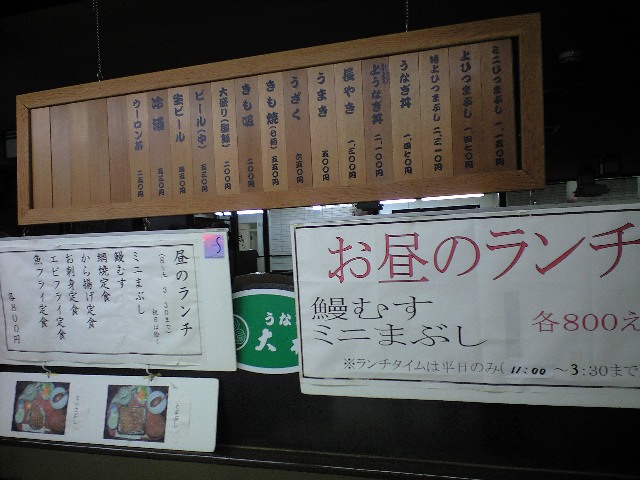 ミニひつまぶし 一、一五〇円
上ひつまぶし 一、四七〇円
特上ひつまぶし 二、二一〇円
うなぎ丼 一、四七〇円
上うなぎ丼 二、一〇〇円
長やき 一、三〇〇円
うまき 五五〇円
うざく 六五〇円
きも焼
きも吸 二〇〇円
大盛り 二〇〇円
ビール(中) 五五〇円
生ビール 五五〇円
冷酒
ウーロン茶 二五〇円
昼のランチ
ミニまぶし
鰻むす
網焼定食
から揚げ定食
お刺身定食
エビフライ定食
魚フライ定食
各800円
うな
大
お昼のランチ
鰻むす
ミニまぶし
各800え
※ランチタイムは平日のみ(11:00 ～3:30まで